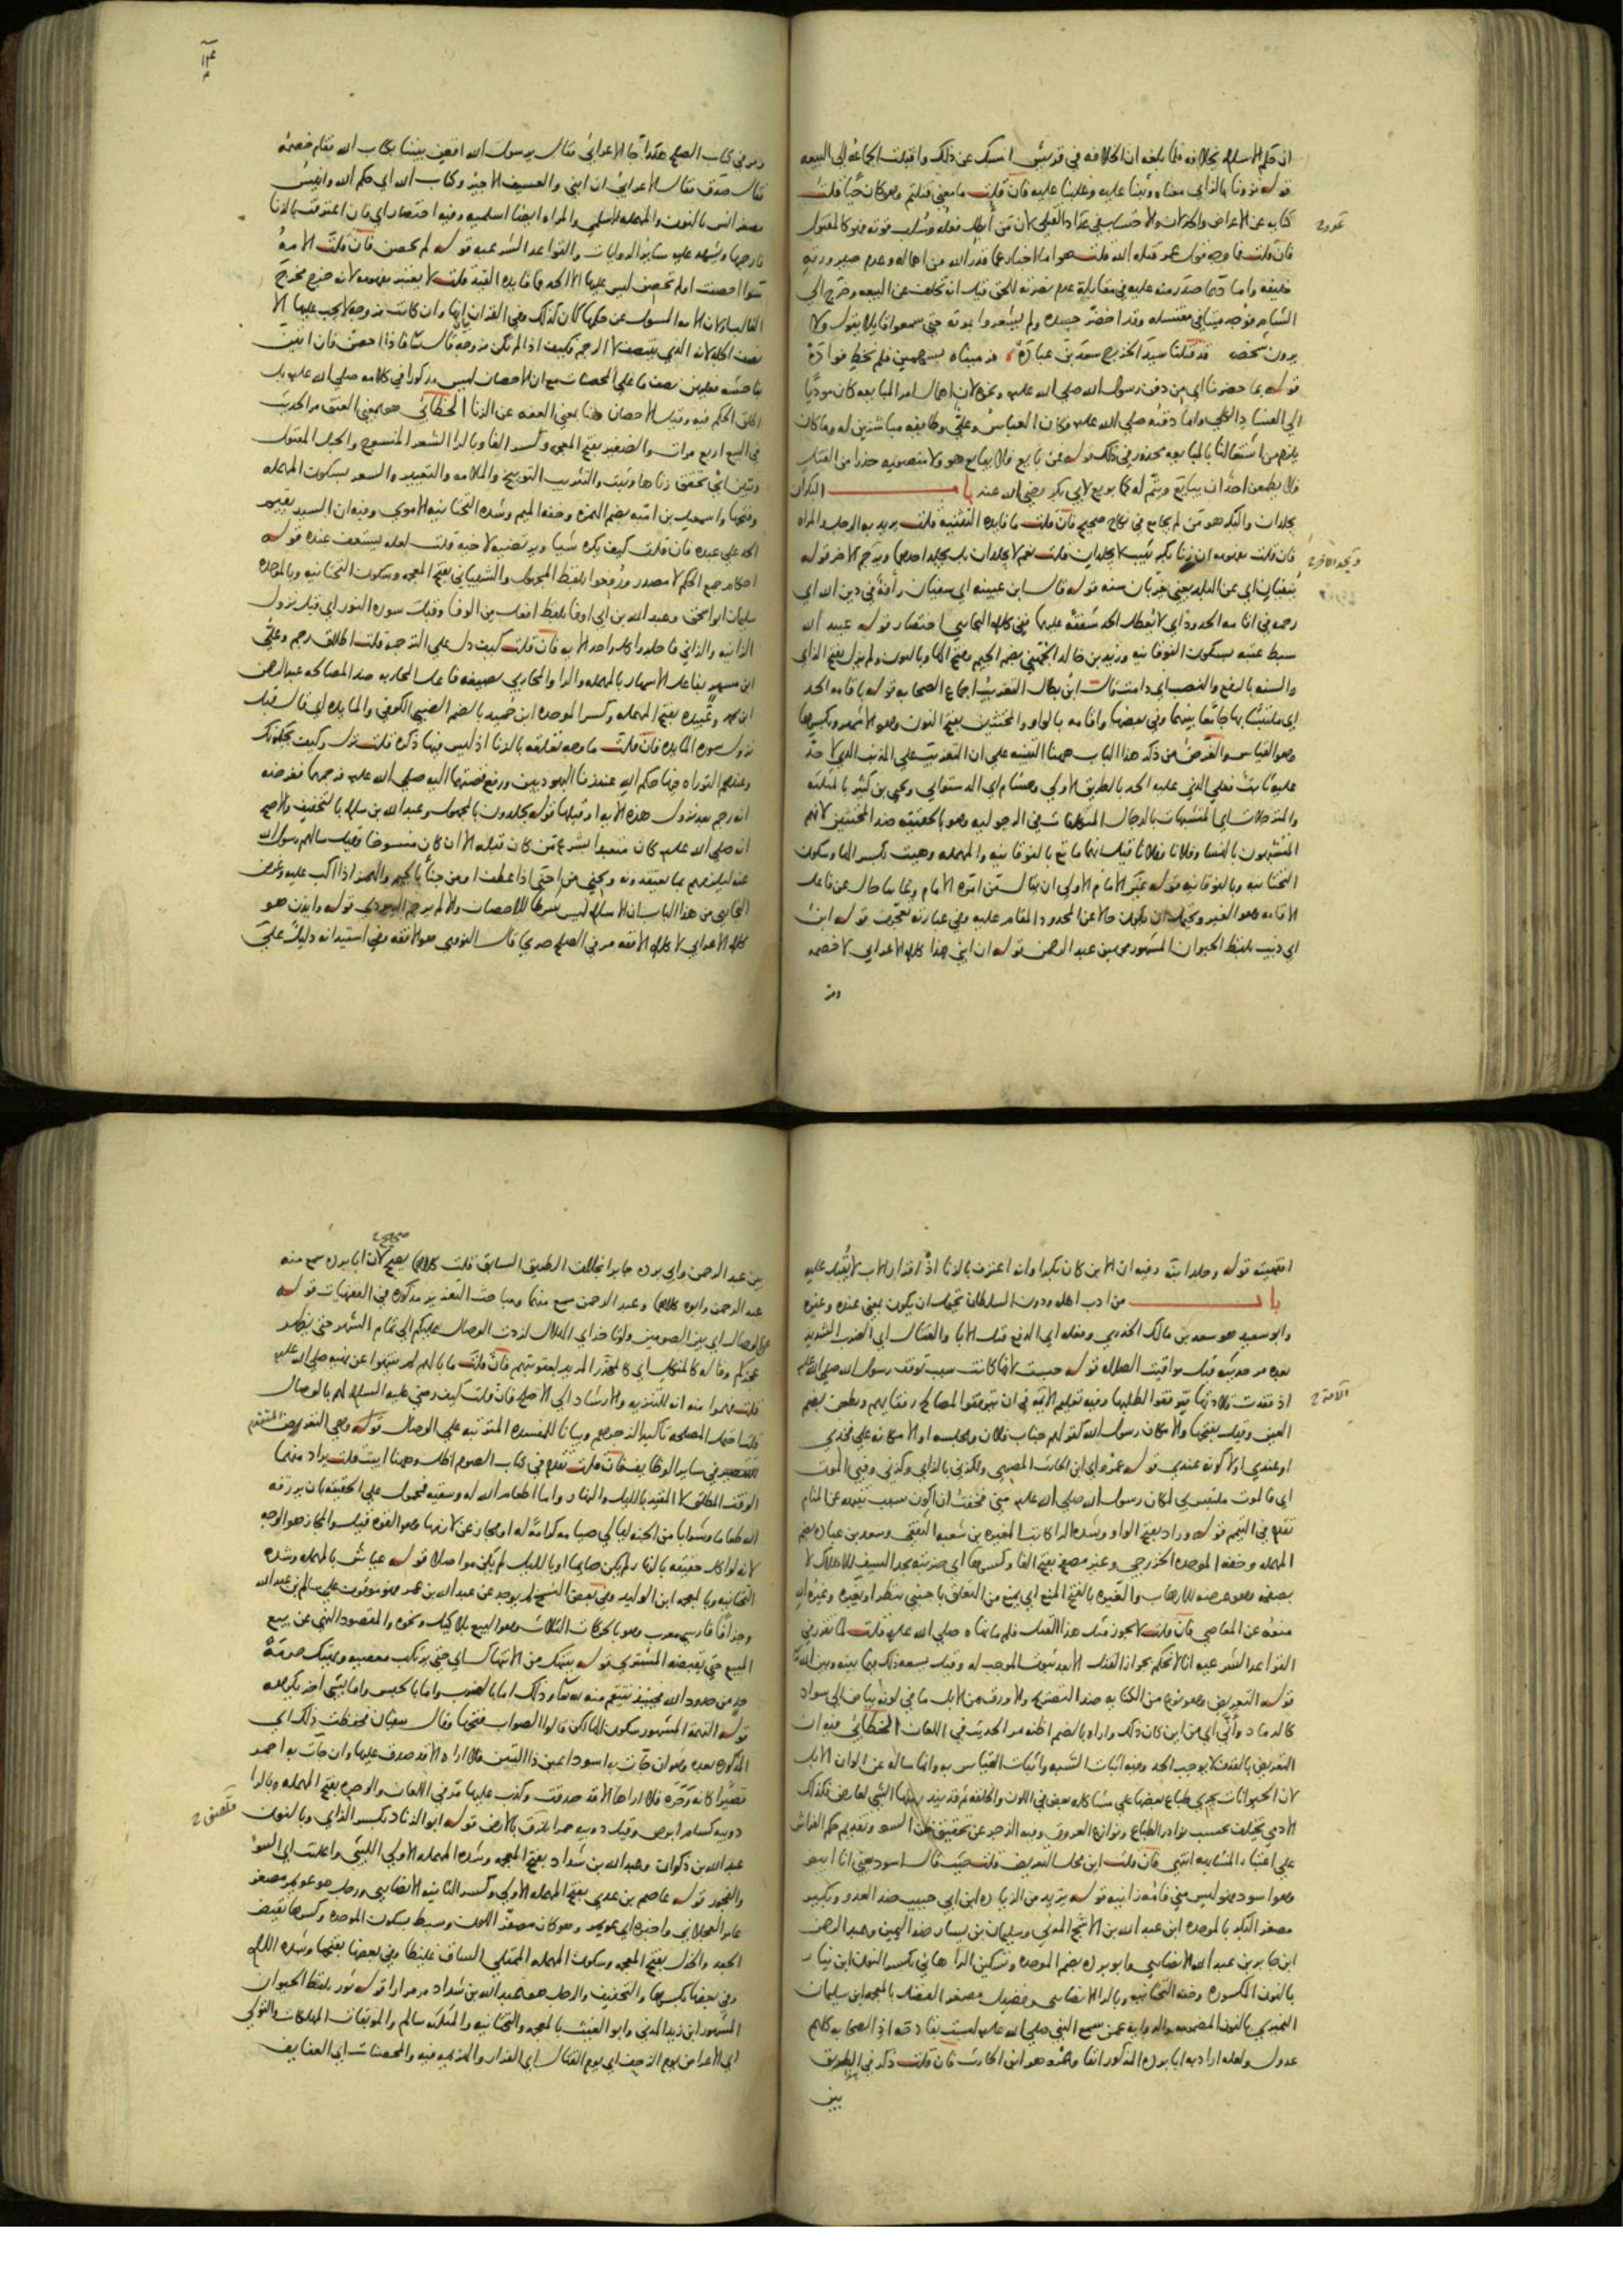 ان حكم الاسلام بخلافه فلما بلغه ان الخلافه في قريش امسك عن ذلك واقبلت الجماعه الى البيعه
قوله نزونا بالزاي معناه وثبنا عليه وغلبنا عليه فان قلت ما معنى قتلتم وهو كان حيا قلت
كنايه عن الاعراض والخذلان والاحتساب في عداد القتلى لان من أبطل فعله وسلب قوته فهو كالمقتول
فان قلت فما وجه قول عمر قتله الله قلت هو اما اخبار عما قدر الله من اهماله وعدم صيرورته
خليفه واما دعا صدر منه عليه في مقابلة عدم نصرته للحق قيل انه تخلف عن البيعه وخرج الى
الشام فوجد ميتا في مغتسله وقد اخضر جسده ولم يشعروا بموته حتى سمعوا قايلا يقول ولا
يرون شخصه قد قتلنا سيد الخزرج سعد بن عباده فرميناه بسهمين فلم نخط فواده
قوله بما حضرنا اي من دفن رسول الله صلى الله عليه ونحوه لان اهمال امر المبايعه كان موديا
الى الفساد الكلي واما دفنه صلى الله عليه فكان العباس وعلي وطايفه مباشرين له وما كان
يلزم من اشتغالنا بالمبايعه محذور في ذلك قوله فمن بايع فلا يبايع هو ولا منصوبه حذرا من القتل
فلا يطمعن احد ان يبايع ويتم له كما بويع لابي بكر رضي الله عنه باب البكران
يجلدان والبكر هو من لم يجامع في نكاح صحيح فان قلت ما فايده التثنيه قلت يريد به الرجل والمراه
فان قلت مفهومه ان زنا بكر بثيب لا يجلدان قلت نعم لا يجلدان بل يجلد احدهما ويرجم الاخر قوله
ينفيان اي عن البلد يعني يغربان سنه قوله قال ابن عيينه اي سفيان رأفة في دين الله اي
رحمه في اقامه الحدود اي لا يعطل الحد شفقه عليهما وفي كلام البخاري اختصار قوله عبيد الله
سبط عتبه بسكون الفوقانيه وزيد بن خالد الجهني بضم الجيم وفتح الها وبالنون ولم يزل بفتح الزاي
والسنه بالرفع والنصب اي دامت قال ابن بطال التغريب اجماع الصحابه قوله باقامه الحد
اي ملتبسا بها جامعا بينهما وفي بعضها واقامه بالواو والمخنثين بفتح النون وهو الاشهر وبكسرها
وهو القياس والغرض من ذكر هذا الباب ههنا التنبيه على ان التغريب على المذنب الذي لا حد
عليه ثابت فعلى الذي عليه الحد بالطريق الاولى وهشام اي الدستوايي ويحيى بن كثير بالمثلثه
والمترجلات اي المتشبهات بالرجال المتكلفات في الرجوليه وهو بالحقيقه ضد المخنثين لانهم
المتشبهون بالنسا وفلانا وفلانا قيل انهما ماتع بالفوقانيه والمهمله وهيت بكسر الها وسكون
التحتانيه وبالفوقانيه قوله غير الامام الاولى ان يقال من امره الامام وغايبا حال عن فاعل
الاقامه وهو الغير ويحتمل ان يكون حالا عن المحدود المقام عليه وفي عبارته تعجرف قوله ابن
ابي ذيب بلفظ الحيوان المشهور محمد بن عبد الرحمن قوله ان ابني هذا كلام الاعرابي لا خصمه
ومر
ومر في كتاب الصلح هكذا جا الاعرابي فقال يرسول الله اقض بيننا بكتاب الله فقام خصمه
فقال صدق فقال الاعرابي ان ابني والعسيف الاجير وكتاب الله اي حكم الله وانيس
مصغر انس بالنون والمهمله الاسلمي والمراه ايضا اسلميه وفيه اختصار اي فان اعترفت بالزنا
فارجمها ويشهد عليه ساير الروايات والقواعد الشرعيه قوله لم يحصن فان قلت الامه
سوا احصنت او لم تحصن ليس عليها الا الحد فما فايده القيد قلت لا يعتبر مفهومه لانه خرج مخرج
الغالب اولان الامه المسول عن حكمها كان كذلك وفي القران انها وان كانت مزوجه لا يجب عليها الا
نصف الجلد لانه الذي ينتصف لا الرجم فكيف اذا لم تكن مزوجه قال تعالى فاذا احصن فان اتين
بفاحشه فعليهن نصف ما على المحصنات مع ان الاحصان ليس مذكورا في كلامه صلى الله عليه بل
اطلق الحكم فيه وقيل الاحصان هنا بمعنى العفه عن الزنا الخطابي هو بمعنى العتق مر الحديث
في البيع اربع مرات والضفير بفتح المعجمه وكسر الفا وبالرا الشعر المنسوج والحبل المفتول
وتبين اي تحقق زناها وثبت والتثريب التوبيخ والملامه والتعيير والسعر بسكون المهمله
وفتحها واسمعيل بن اميه بضم الهمزه وخفه الميم وشده التحتانيه الاموي وفيه ان السيد يقيم
الحد على عبده فان قلت كيف يكره شيا ويرتضيه لاخيه قلت لعله يستعف عنده قوله
احكام جمع الحكم لا مصدر ورفعوا بلفظ المجهول والشيباني بفتح المعجمه وسكون التحتانيه وبالموحده
سليمان ابو اسحق وعبد الله بن ابي اوفا بلفظ افعل من الوفا وقبل سورة النور اي قبل نزول
الزانيه والزاني فاجلدوا كل واحد الايه فان قلت كيف دل على الترجمه قلت اطلاق رجم وعلي
ابن مسهر بفاعل الاسهار بالمهمله والرا والمحاربي بصيغه فاعل المحاربه ضد المصالحه عبد الرحمن
ابن محمد وعبيده بفتح المهمله وكسر الموحده ابن حميد بالضم الضبي الكوفي والمايده اي قال قبل
نزول سوره المايده فان قلت ما وجه تعلقه بالزنا اذ ليس فيها ذكره قلت نزل وكيف يحكمونك
وعندهم التوراه فيها حكم الله عند زنا اليهوديين ورفع قصتهما اليه صلى الله عليه فرجمهما فغرضه
انه رجم بعد نزول هذه الايه او قبلها قوله يجلدون بالمجهول وعبد الله بن سلام بالتخفيف والاصح
انه صلى الله عليه كان متعبدا بشرع من كان قبله الا ان كان منسوخا وقيل سالهم رسول الله
عنه ليلزمهم بما يعتقدونه ويجني من احنى اذا عطف او من جنأ بالجيم والهمز اذا اكب عليه وغرض
البخاري من هذا الباب ان الاسلام ليس شرطا للاحصان والا لم يرجم اليهودي قوله وايذن هو
كلام الاعرابي لا كلام الافقه مر في الصلح صريحا قال النووي هو الافقه وفي استيذانه دليل على
افقهيته قوله وجلد ابنه وفيه ان الابن كان بكرا وانه اعترف بالزنا اذ اقرار الاب لا يقبل عليه
باب من ادب اهله دون السلطان يحتمل ان يكون بمعنى عنده وغيره
وابو سعيد هو سعد بن مالك الخدري وفعله اي الدفع قبل الابا والقتال اي الضرب الشديد
بعده مر حديثه قبل مواقيت الصلاه قوله حبست لانها كانت سبب توقف رسول الله صلى الله عليه
اذ فقدت قلادتها فتوقفوا لطلبها وفيه تعليم الامه في ان يتوقفوا لمصالح رفقايهم ويطعن بضم
العين وقيل بفتحها والا مكان رسول الله كقولهم جناب فلان ومجلسه او الا مكانه على فخذي
او عندي او لا كونه عندي قوله عمرو اي ابن الحارث المصري ولكزني بالزاي وكزني وفبي الموت
اي فالموت ملتبس بي لمكان رسول الله صلى الله عليه مني فخفت ان اكون سبب تنبيهه عن المنام
تقدم في التيمم قوله وراد بفتح الواو وشده الرا كاتب المغيره بن شعبه الثقفي وسعد بن عباده بضم
المهمله وخفه الموحده الخزرجي وغير مصفح بفتح الفا وكسرها اي ضربته بحد السيف للاهلاك لا
بصفحه وهو عرضه للارهاب والغيره بالفتح المنع اي يمنع من التعلق باجنبي بنظر او بغيره وغيرة الله
منعه عن المعاصي فان قلت لا يجوز مثل هذا القتل فلم ما نهاه صلى الله عليه قلت لما تقرر في
القواعد الشرعيه انا لا نحكم بجواز القتل الا بعد ثبوت الموجب له وقيل يسعه ذلك بينه وبين الله تعالى
قوله التعريض وهو نوع من الكنايه ضد التصريح والاورق من الابل ما في لونه بياض الى سواد
كالرماد وأنى اي من اين كان ذلك واراه بالضم اظنه مر الحديث في اللعان الخطابي فيه ان
التعريض بالقذف لا يوجب الحد وفيه اثبات الشبه واثبات القياس به وانما ساله عن الوان الابل
لان الحيوانات تجري طباع بعضها على مشاكله بعض في اللون والخلقه ثم قد يندر منها الشي لعارض فكذلك
الادمي يختلف بحسب نوادر الطباع ونوازع العروق وفيه الزجر عن تحقيق ظن السوء وتقديم حكم الفراش
على اعتبار المشابهه انتهى فان قلت اين محل التعريض قلت حيث قال اسود يعني انا ابيض
وهو اسود فهو ليس مني فامه زانيه قوله يزيد من الزياده ابن ابي حبيب ضد العدو وبكير
مصغر البكر بالموحده ابن عبد الله بن الاشج المدني وسليمان بن يسار ضد اليمين وعبد الرحمن
ابن جابر بن عبد الله الانصاري وابو برده بضم الموحده وتسكين الرا هاني بكسر النون ابن نيار
بالنون المكسوره وخفه التحتانيه وبالرا الانصاري وفضيل مصغر الفضل بالمعجمه ابن سليمان
النميري بالنون المضمومه والروايه عمن سمع النبي صلى الله عليه ليست بقادحه اذ الصحابه كلهم
عدول ولعله اراد به ابا برده المذكور انفا وعمرو هو ابن الحارث فان قلت ذكر في الطريق
بين
بين عبد الرحمن وابي برده جابرا بخلاف الطريق السابق قلت كلاهما صحيح لان ابا برده سمع منه
عبد الرحمن وابوه كلاهما وعبد الرحمن سمع منهما ومباحث التعزير مذكوره في الفقهيات قوله
عن الوصال اي بين الصومين ولو تاخر اي الهلال لزدت الوصال عليكم الى تمام الشهر حتى يظهر
عجزكم وقاله كالمنكل اي كالمحذر المريد لعقوبتهم فان قلت ما بالهم لم ينتهوا عن نهيه صلى الله عليه
قلت فهموا منه انه للتنزيه والارشاد الى الاصلح فان قلت كيف رضي عليه السلام لهم بالوصال
قلت احتمل المصلحه تاكيدا لزجرهم وبيانا للمفسده المترتبه على الوصال قوله وهي التعرض
للتقصير في ساير الوظايف فان قلت تقدم في كتاب الصوم اظل وههنا ابيت قلت يراد منهما
الوقت المطلق لا المقيد بالليل والنهار واما اطعام الله له وسقيه فمحمول على الحقيقه بان يرزقه
الله طعاما وشرابا من الجنه ليالي صيامه كرامة له او مجاز عن لازمها وهو القوه قيل والمجاز هو الوجه
لانه لو اكل حقيقه بالنهار لم يكن صايما او بالليل لم يكن مواصلا قوله عياش بالمهمله وشده
التحتانيه وبالمعجمه ابن الوليد وفي بعض النسخ لم يوجد عن عبد الله بن عمر فهو موقوف على سالم بن عبد الله
وجزافا فارسي معرب وهو بالحركات الثلاث وهو البيع بلا كيل ونحوه والمقصود النهي عن بيع
المبيع حتى يقبضه المشتري قوله ينتهك من الانتهاك اي حتى يرتكب معصيه ويهتك حرمه
حد من حدود الله فحينيذ ينتقم منه لله تعالى وذلك اما بالضرب واما بالحبس واما بشي اخر يكرهه
قوله التهمه المشهور سكون الها لكن قالوا الصواب فتحها وقال سفيان فحفظت ذلك اي
المذكور بعده وهو ان جات به اسود اعين ذا اليتين فلا اراه الا قد صدق عليها وان جات به احمر
قصيرا كانه وحره فلا اراها الا قد صدقت وكذب عليها مر في اللعان والوحره بفتح المهمله وبالرا
دويبه كسام ابرص وقيل دويبه حمرا تلزق بالارض قوله ابو الزناد بكسر الزاي وبالنون
عبد الله بن ذكوان وعبد الله بن شداد بفتح المعجمه وشده المهمله الاولى الليثي واعلنت اي السوء
والفجور قوله عاصم بن عدي بفتح المهمله الاولى وكسر الثانيه الانصاري ورجل هو عويمر مصغر
عامر العجلاني واخبره اي عويمر وهو كان مصفر اللون وسبط بسكون الموحده وكسرها نقيض
الجعد والخدل بفتح المعجمه وسكون المهمله الممتلي الساق غليظا وفي بعضها بفتحها وشده اللام
وفي بعضها بكسرها والتخفيف والرجل هو عبد الله بن شداد مر مرارا قوله ثور بلفظ الحيوان
المشهور ابن زيد المدني وابو الغيث بالمعجمه والتحتانيه والمثلثه سالم والموبقات المهلكات والتولي
اي الاعراض يوم الزحف اي يوم القتال اي الفرار والترجمه فيه والمحصنات اي العفايف